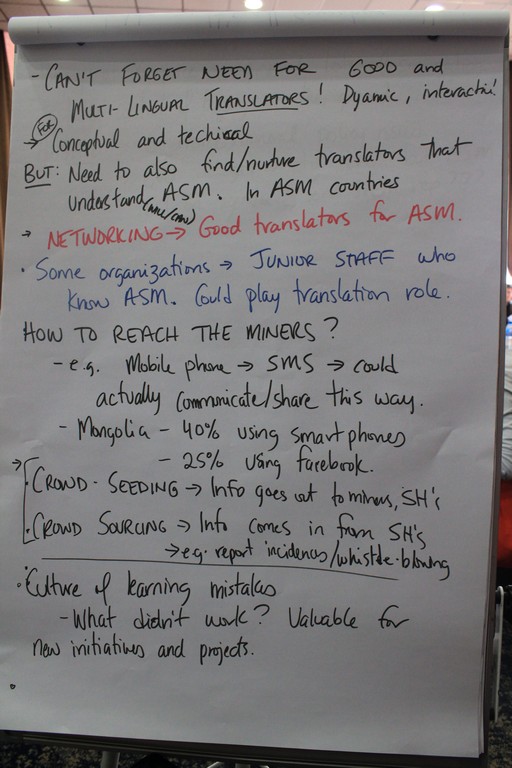 - CAN'T FORGET NEED FOR GOOD and
MULTI-LINGUAL TRANSLATORS! Dyamic, interactiv!
→ (For) Conceptual and techical
BUT: Need to also find/nurture translators that
understand ASM. In ASM countries
→ NETWORKING → Good translators for ASM.
• Some organizations → JUNIOR STAFF who
know ASM. Could play translation role.
HOW TO REACH THE MINERS?
- e.g. Mobile phone → SMS → could
actually communicate/share this way.
- Mongolia - 40% using smartphones
- 25% using facebook.
→ • CROWD-SEEDING → Info goes out to miners, SH's
• CROWD SOURCING → Info comes in from SH's
→ e.g. report incidences/whistle-blowing
• Culture of learning mistakes
- What didn't work? Valuable for
new initiatives and projects.